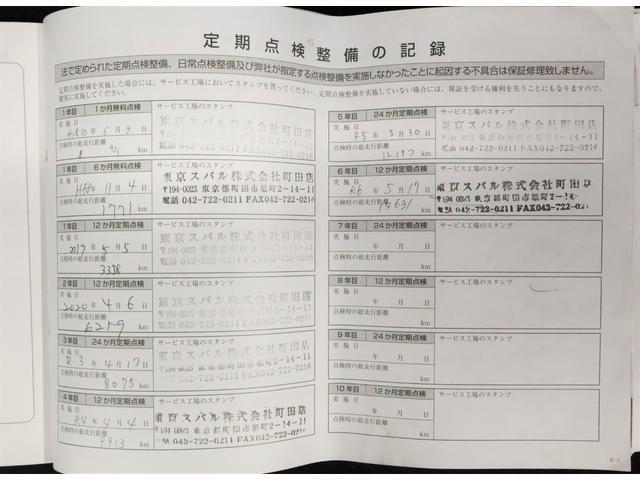 定期点検整備の記録
法で定められた定期点検整備、日常点検整備及び弊社が指定する点検整備を実施しなかったことに起因する不具合は保証修理致しません。
定期点検整備を実施した場合には、サービス工場においてスタンプを貰ってください。定期点検整備を実施していない場合には、保証を受ける権利を失うこともなりますので、
確実に実施してください。
1年目 1か月無料点検 サービス工場のスタンプ
実施日
年 6月 9日
点検時の総走行距離
km
東京スバル株式会社町田店
〒194-0023 東京都町田市旭町2-14-11
電話 042-722-0211 FAX042-722-0216
1年目 6か月無料点検 サービス工場のスタンプ
実施日
年 11月 4日
点検時の総走行距離
1771 km
東京スバル株式会社町田店
〒194-0023 東京都町田市旭町2-14-11
電話 042-722-0211 FAX042-722-0216
1年目 12か月定期点検 サービス工場のスタンプ
実施日
2019年 5月 5日
点検時の総走行距離
3338 km
東京スバル株式会社町田店
〒194-0023 東京都町田市旭町2-14-11
電話 042-722-0211 FAX042-722-0216
2年目 12か月定期点検 サービス工場のスタンプ
実施日
2020年 4月 6日
点検時の総走行距離
6279 km
東京スバル株式会社町田店
〒194-0023 東京都町田市旭町2-14-11
電話 042-722-0211 FAX042-722-0216
3年目 24か月定期点検 サービス工場のスタンプ
実施日
R3年 4月 17日
点検時の総走行距離
8075 km
東京スバル株式会社町田店
〒194-0023 東京都町田市旭町2-14-11
電話 042-722-0211 FAX042-722-0216
4年目 12か月定期点検 サービス工場のスタンプ
実施日
R4年 4月 4日
点検時の総走行距離
9913 km
東京スバル株式会社町田店
〒194-0023 東京都町田市旭町2-14-11
電話 042-722-0211 FAX042-722-0216
5年目 24か月定期点検 サービス工場のスタンプ
実施日
R5年 3月 30日
点検時の総走行距離
km
東京スバル株式会社町田店
〒194-0023 東京都町田市旭町2-14-11
電話 042-722-0211 FAX042-722-0216
6年目 12か月定期点検 サービス工場のスタンプ
実施日
R6年 5月 17日
点検時の総走行距離
14631 km
東京スバル株式会社町田店
〒194-0023 東京都町田市旭町2-14-11
電話 042-722-0211 FAX042-722-0216
7年目 24か月定期点検 サービス工場のスタンプ
実施日
年 月 日
点検時の総走行距離
km
8年目 12か月定期点検 サービス工場のスタンプ
実施日
年 月 日
点検時の総走行距離
km
9年目 24か月定期点検 サービス工場のスタンプ
実施日
年 月 日
点検時の総走行距離
km
10年目 12か月定期点検 サービス工場のスタンプ
実施日
年 月 日
点検時の総走行距離
km